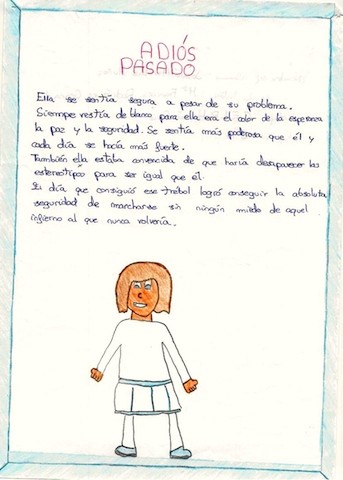 ADIÓS
PASADO
Ella se sentía segura a pesar de su problema.
Siempre vestía de blanco para ella era el color de la esperanza
la paz y la seguridad. Se sentía más poderosa que él y
cada día se hacía más fuerte.
También ella estaba convencida de que haría desaparecer los
estereotipos para ser igual que él.
El día que consiguió ese trébol logró conseguir la absoluta
seguridad de marcharse sin ningún miedo de aquel
infierno al que nunca volvería.